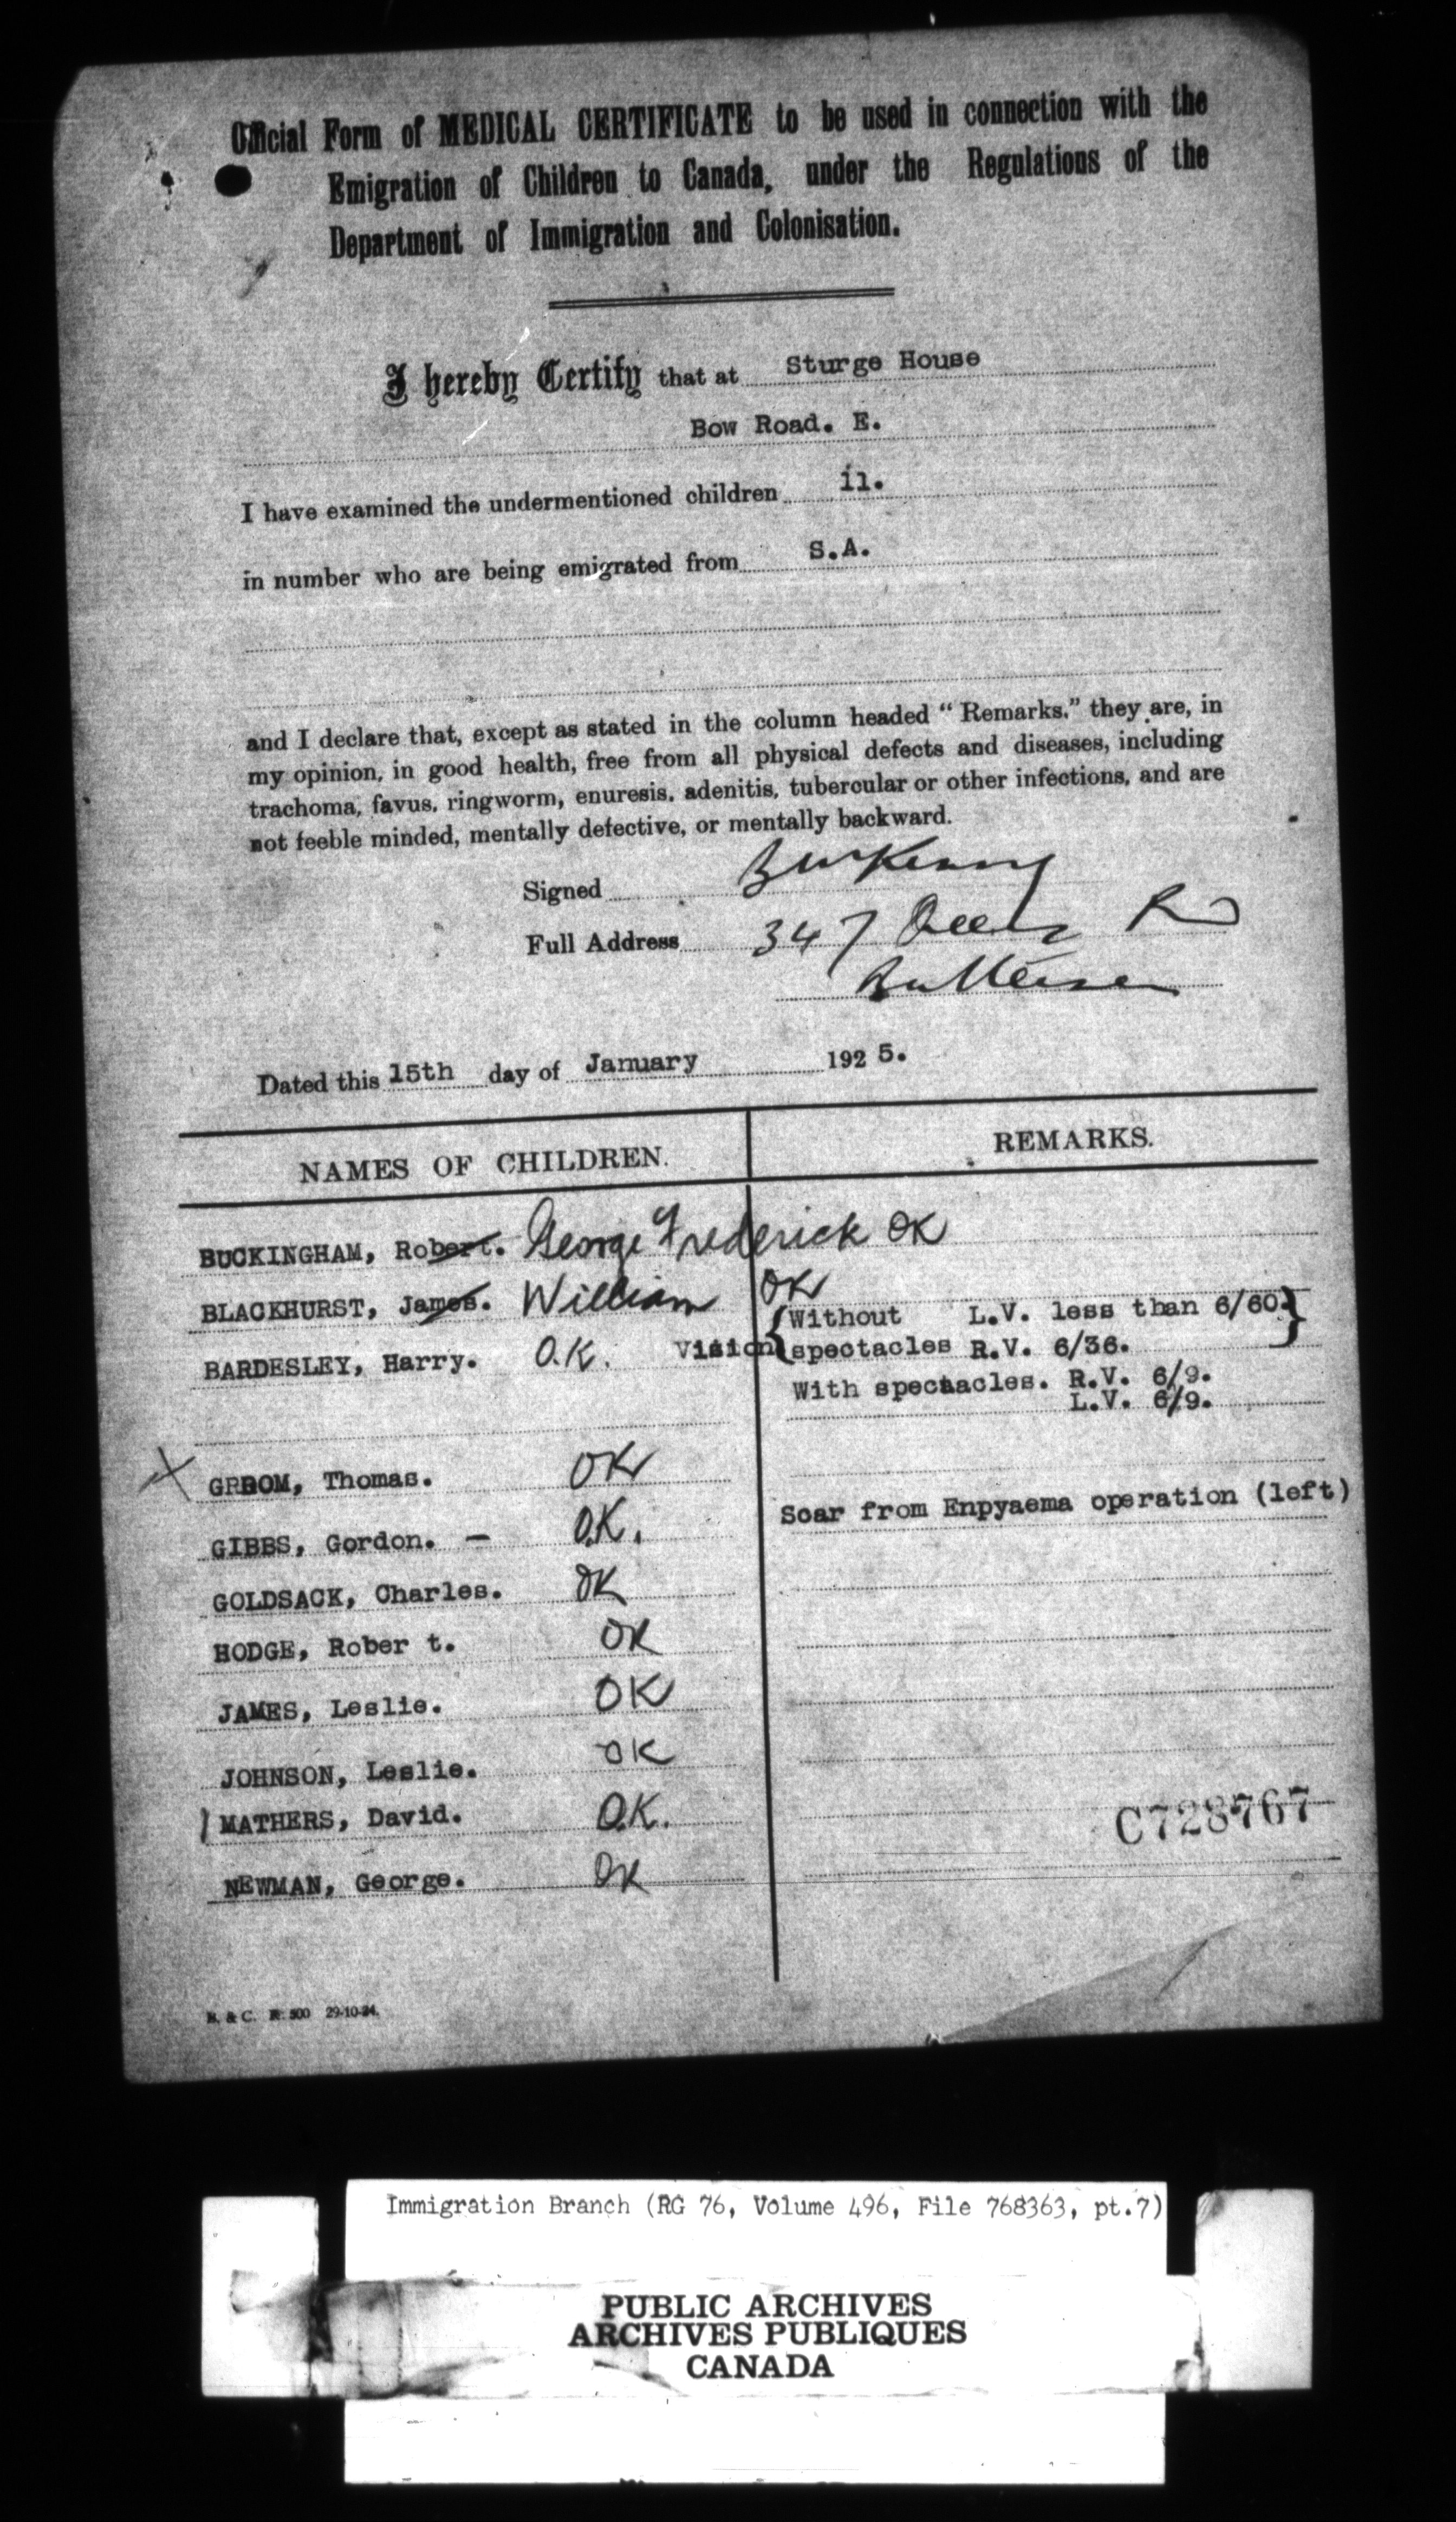 Official Form of MEDICAL CERTIFICATE to be used in connection with the
Emigration of Children to Canada, under the Regulations of the
Department of Immigration and Colonisation.
I hereby Certify that at Sturge House
Bow Road. E.
I have examined the undermentioned children 11.
in number who are being emigrated from S.A.
and I declare that, except as stated in the column headed "Remarks." they are, in
my opinion, in good health, free from all physical defects and diseases, including
trachoma, favus, ringworm, enuresis, adenitis, tubercular or other infections, and are
not feeble minded, mentally defective, or mentally backward.
Signed
Full Address 347 Rd
Battersea
Dated this 15th day of January 1925.
NAMES OF CHILDREN. REMARKS.
BUCKINGHAM, Robert. George Frederick OK
BLACKHURST, James. William OK
{Without L.V. less than 6/60.}
BARDESLEY, Harry. O.K. Vision {spectacles R.V. 6/36.
With spectacles. R.V. 6/9.
L.V. 6/9.
X GROOM, Thomas. OK
Scar from Enpyaema operation (left)
GIBBS, Gordon. — O.K.
GOLDSACK, Charles. OK
HODGE, Rober t. OK
JAMES, Leslie. OK
JOHNSON, Leslie. OK
MATHERS, David. O.K.
C728767
NEWMAN, George. OK
B. & C. 500 29-10-24.
Immigration Branch (RG 76, Volume 496, File 768363, pt.7)
PUBLIC ARCHIVES
ARCHIVES PUBLIQUES
CANADA